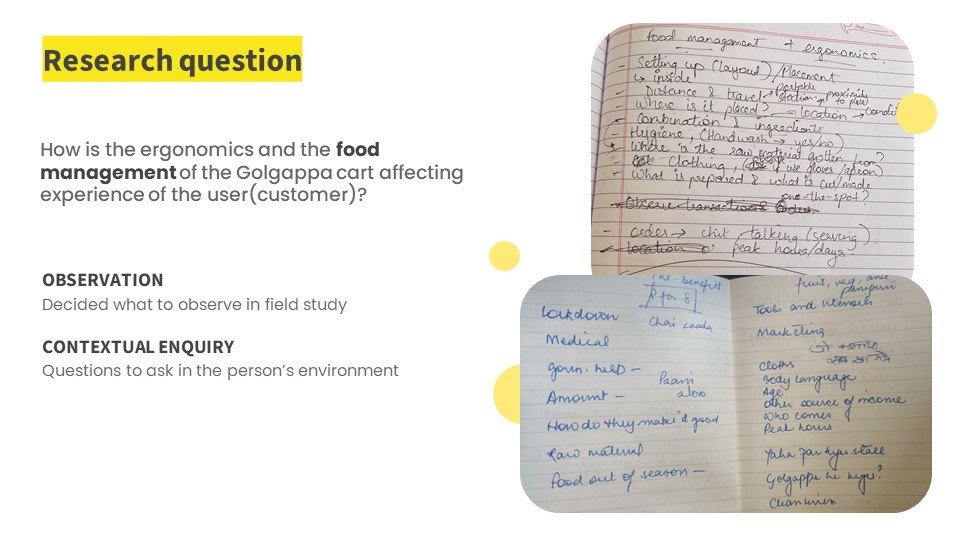 Research question
How is the ergonomics and the food
management of the Golgappa cart affecting
experience of the user(customer)?
OBSERVATION
Decided what to observe in field study
CONTEXTUAL ENQUIRY
Questions to ask in the person's environment
food management + ergonomics.
- Setting up (layout) / Placement
↳ inside
portable
- Distance & travel → station'y / proximity
to place
- Where is it placed? → location →
- Combination & ingredients
- Hygiene, (Handwash → yes/no)
- Where is the raw material gotten from?
- Clothing, (if use gloves/apron)
- What is prepared & what is cut/made
one-the-spot?
- Observe transactions & Orders.
- order → chit, talking (serving)
- location peak hodes/days.
benefit
Lockdown
Chai laada
Medical
govn. help -
Paani
Amount -
aloo
How do they make'd good
Raw material
food out of season -
fruit, veg, and
panipuri
Tools and utensils
Marketing
Cloths
Body language
Age
other source of income
Who comes
Peak hours
Yaha par kyu stall
Golgappe hi kyu?